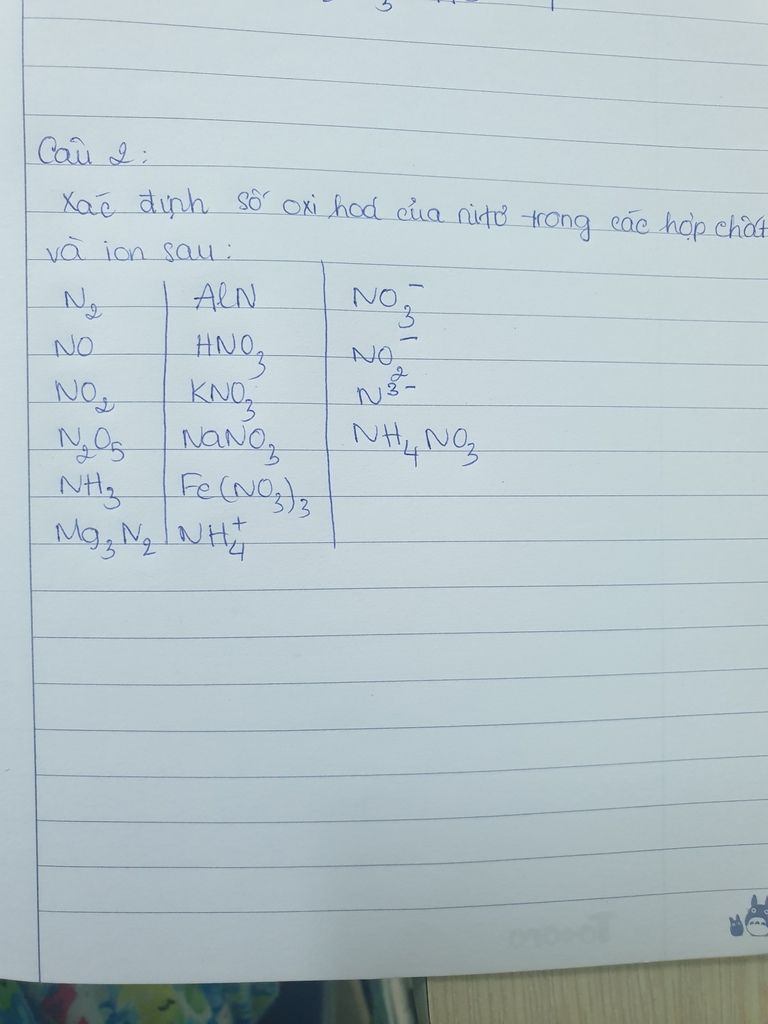 Câu 2:
Xác định số oxi hoá của nitơ trong các hợp chất
và ion sau:
N₂ | AlN | NO₃⁻
NO | HNO₃ | NO₂⁻
NO₂ | KNO₃ | N³⁻
N₂O₅ | NaNO₃ | NH₄NO₃
NH₃ | Fe(NO₃)₃
Mg₃N₂ | NH₄⁺